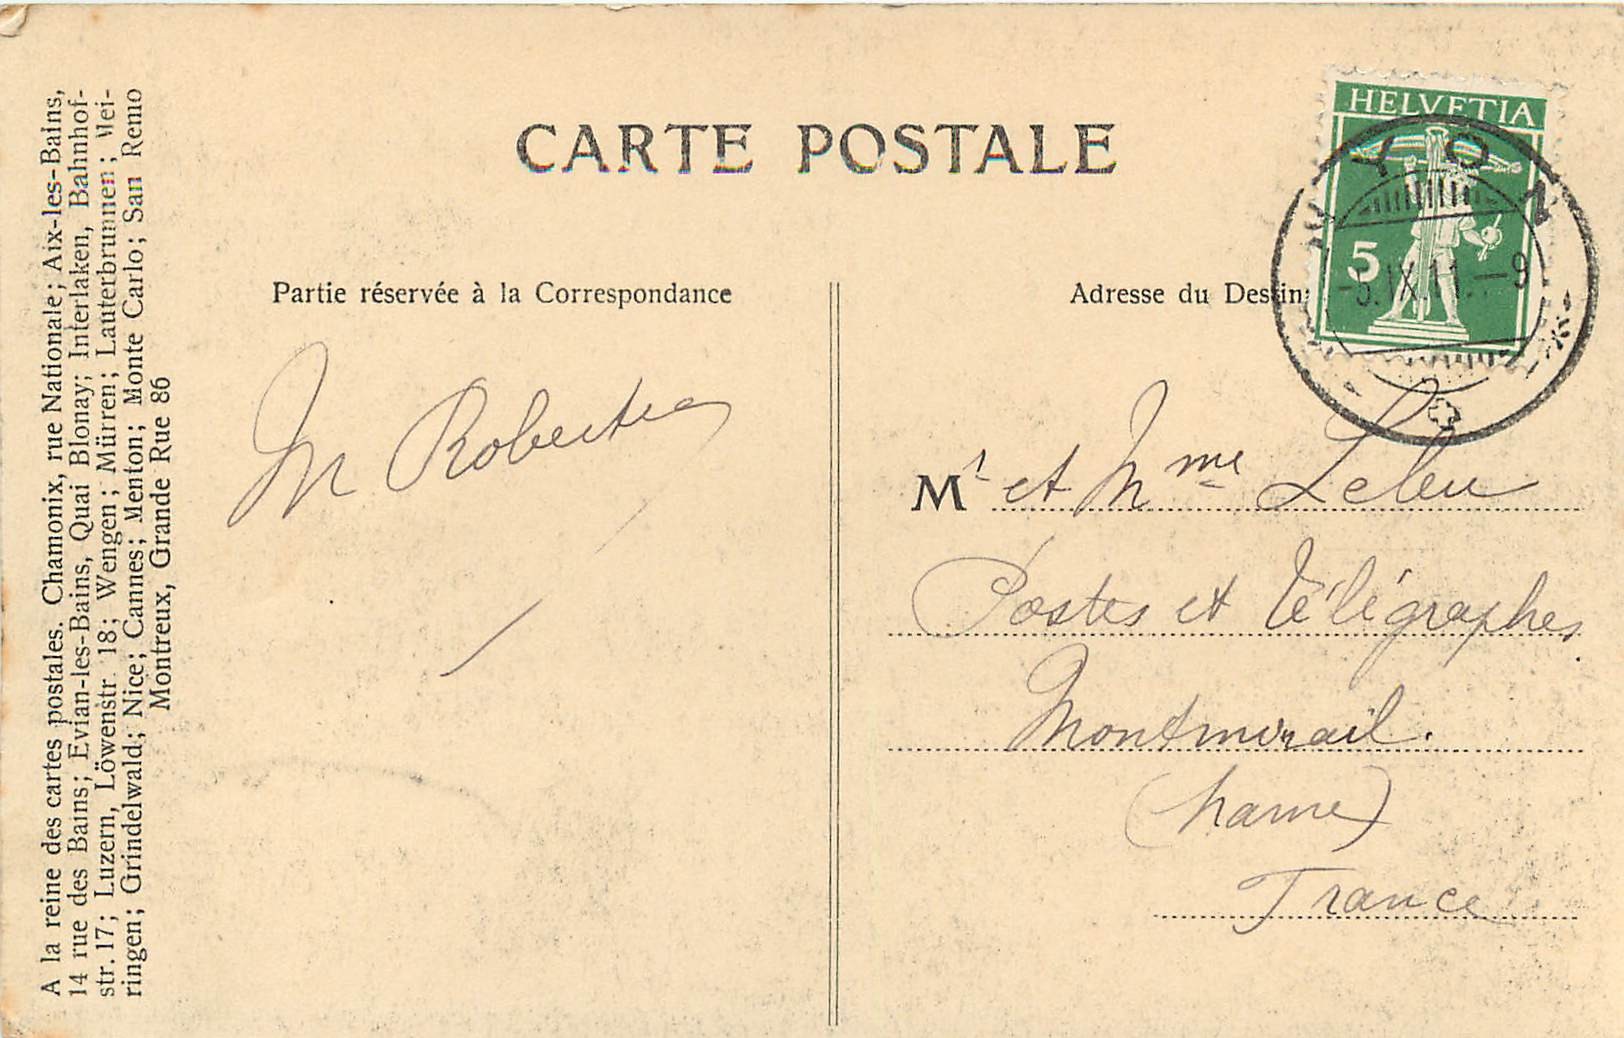 CARTE POSTALE
HELVETIA
5
NYON
-5.IX.11.-9
Partie réservée à la Correspondance
Adresse du Destin
M Robert
Mr et Mme Lebeu
Postes et Télégraphes
Montmirail.
(Marne)
France
A la reine des cartes postales. Chamonix, rue Nationale; Aix-les-Bains,
14 rue des Bains; Evian-les-Bains, Quai Blonay; Interlaken, Bahnhof-
str. 17; Luzern, Löwenstr. 18; Wengen; Mürren; Lauterbrunnen; Mei-
ringen; Grindelwald; Nice; Cannes; Menton; Monte Carlo; San Remo
Montreux, Grande Rue 86